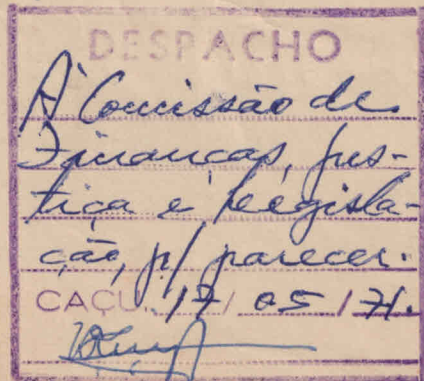 DESPACHO
À Comissão de
Finanças, Jus-
tiça e Legisla-
ção, p/ parecer.
CAÇU, 17/05/71.